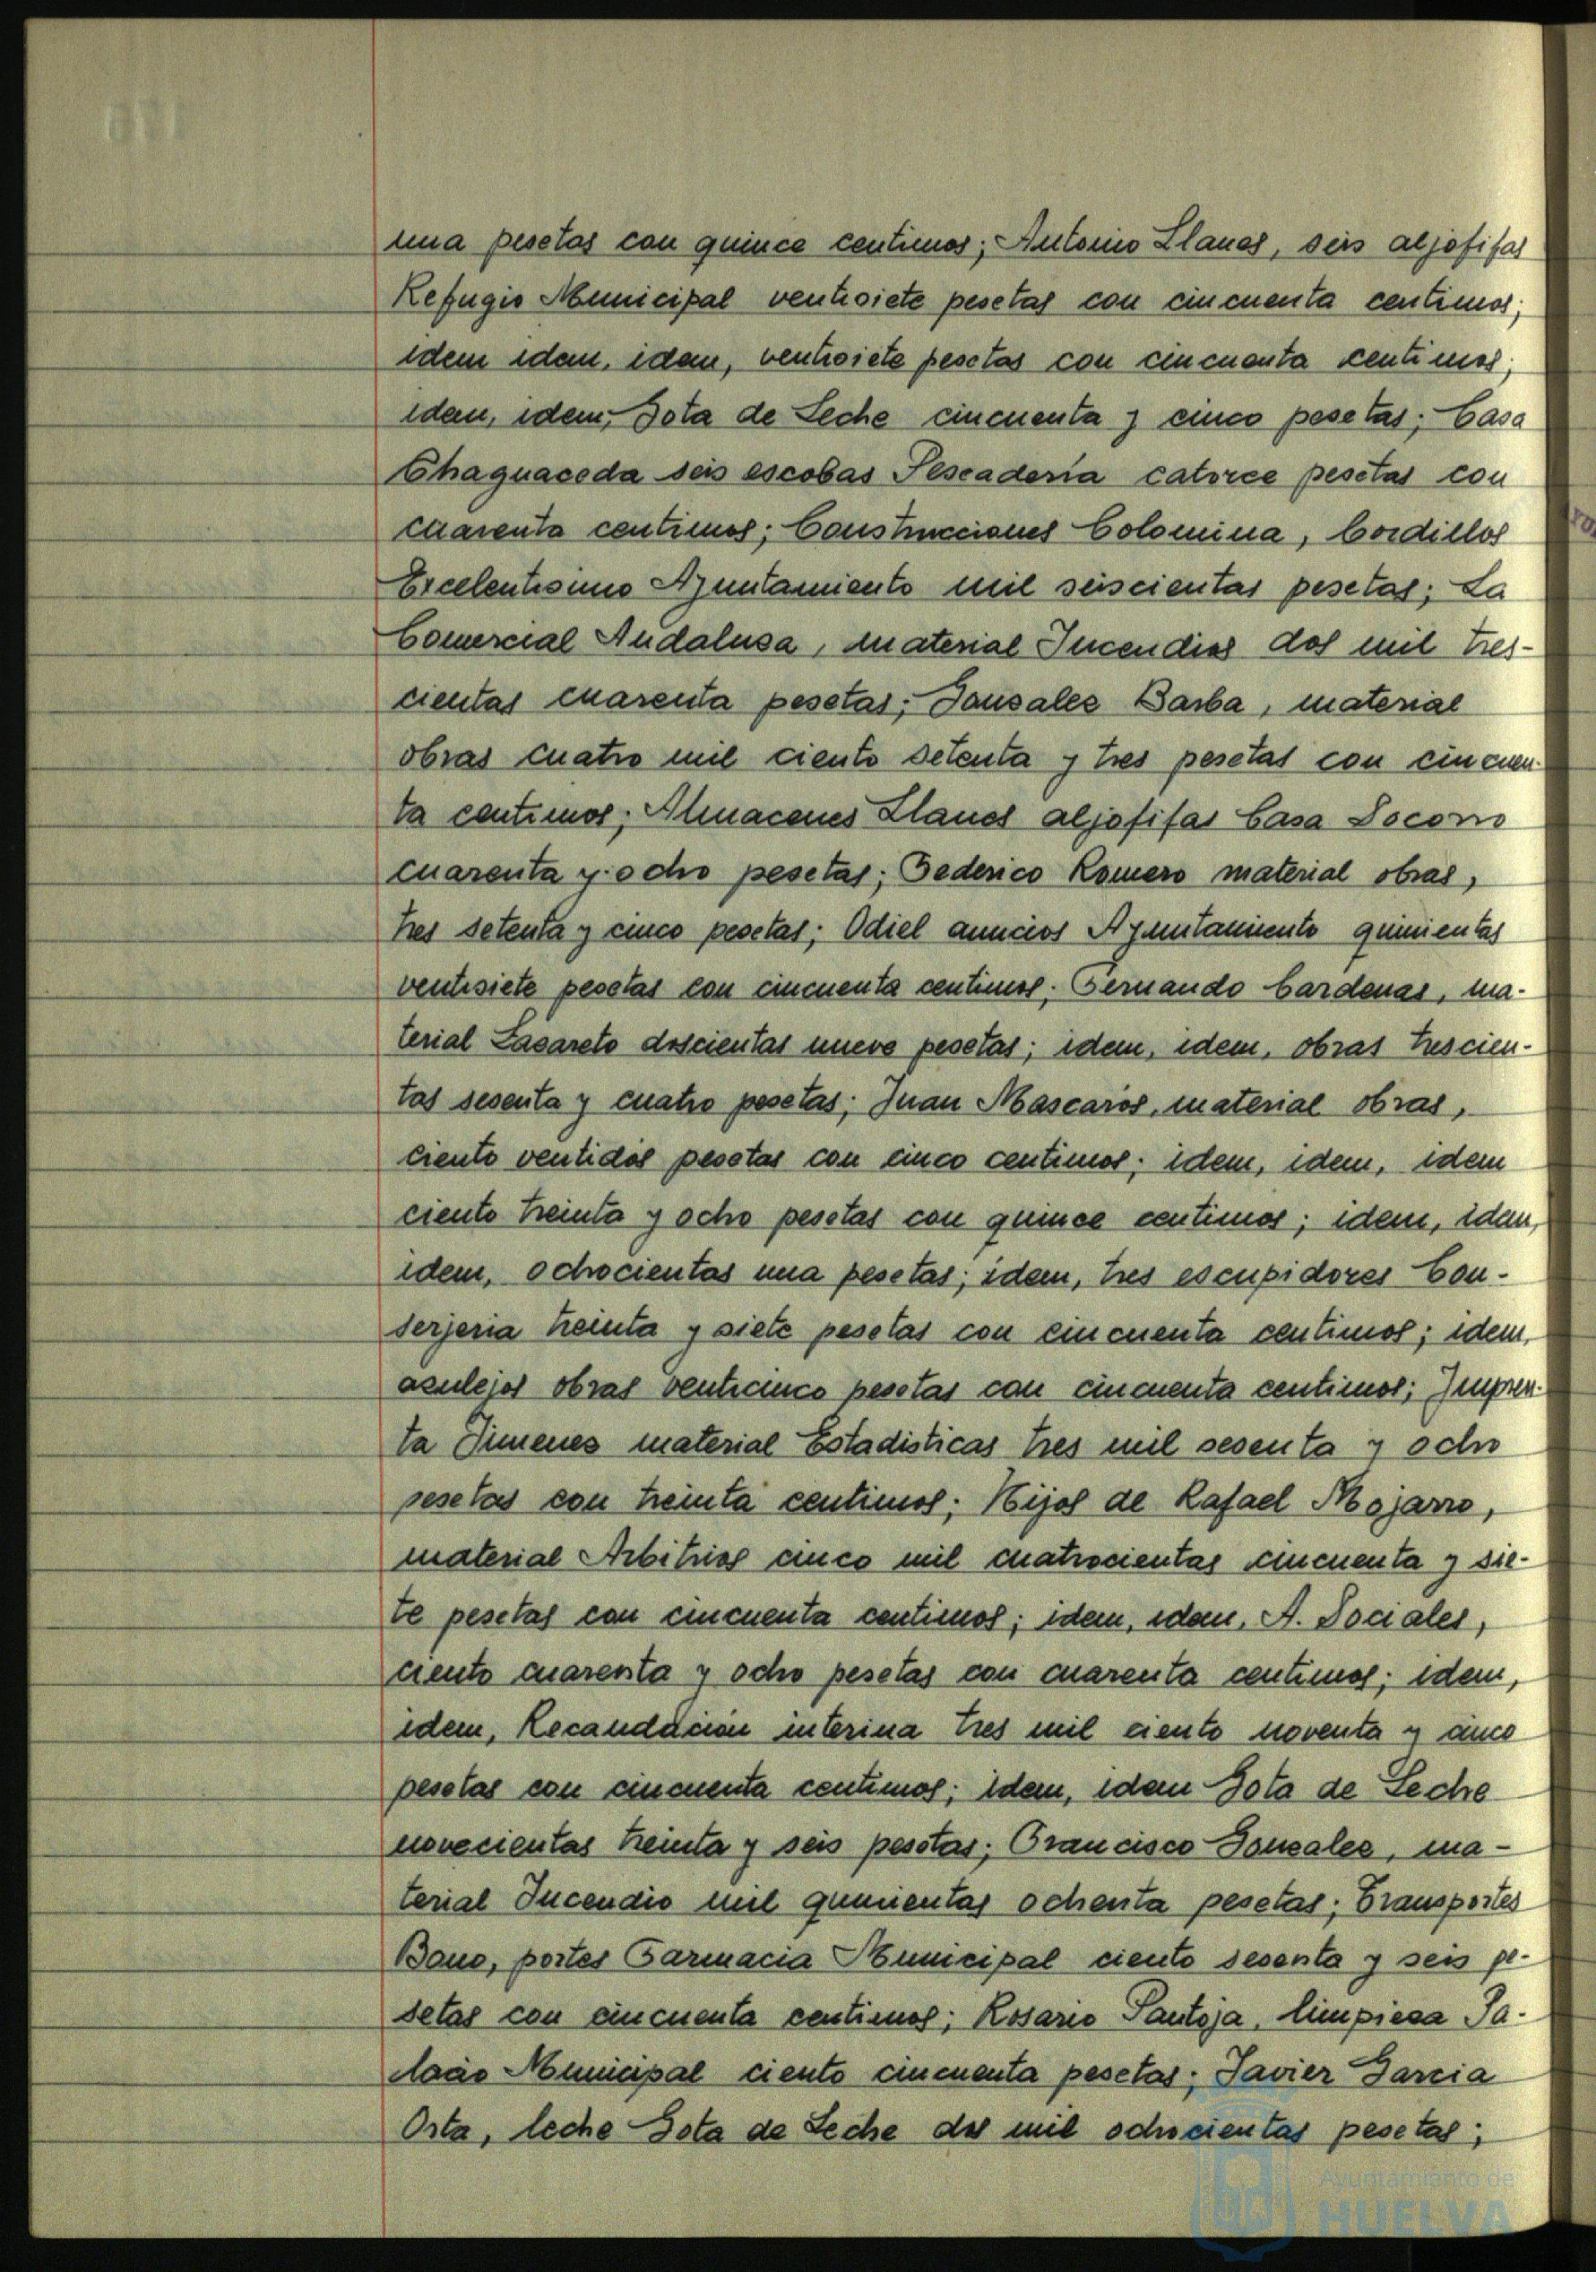 una pesetas con quince centimos; Antonio Llanes, seis aljofifas
Refugio Municipal ventisiete pesetas con cincuenta centimos;
idem idem, idem, ventisiete pesetas con cincuenta centimos;
idem, idem, Gota de Leche cincuenta y cinco pesetas; Casa
Chaguaceda seis escobas Pescaderia catorce pesetas con
cuarenta centimos; Construcciones Colomina, Bordillos
Excelentisimo Ayuntamiento mil seiscientas pesetas; La
Comercial Andalusa, material Incendios dos mil tres-
cientas cuarenta pesetas; Gonsales Barba, material
obras cuatro mil ciento setenta y tres pesetas con cincuen-
ta centimos; Almacenes Llanes aljofifas Casa Socorro
cuarenta y ocho pesetas; Federico Romero material obras,
tres setenta y cinco pesetas; Odiel anuncios Ayuntamiento quinientas
ventisiete pesetas con cincuenta centimos; Fernando Cardenas, ma-
terial Lasareto doscientas nueve pesetas; idem, idem, obras trescien-
tas sesenta y cuatro pesetas; Juan Mascarós, material obras,
ciento ventidós pesetas con cinco centimos; idem, idem, idem
ciento treinta y ocho pesetas con quince centimos; idem, idem,
idem, ochocientas una pesetas; idem, tres escupidores Con-
serjeria treinta y siete pesetas con cincuenta centimos; idem,
asulejos obras venticinco pesetas con cincuenta centimos; Impren-
ta Jimenes material Estadisticas tres mil sesenta y ocho
pesetas con treinta centimos; Hijos de Rafael Mojarro,
material Arbitrios cinco mil cuatrocientas cincuenta y sie-
te pesetas con cincuenta centimos; idem, idem, A. Sociales,
ciento cuarenta y ocho pesetas con cuarenta centimos; idem,
idem, Recaudación interina tres mil ciento noventa y cinco
pesetas con cincuenta centimos; idem, idem Gota de Leche
novecientas treinta y seis pesetas; Francisco Gonsales, ma-
terial Incendio mil quinientas ochenta pesetas; Transportes
Bono, portes Farmacia Municipal ciento sesenta y seis pe-
setas con cincuenta centimos; Rosario Pantoja, limpiesa Pa-
lacio Municipal ciento cincuenta pesetas; Javier Garcia
Orta, leche Gota de Leche dos mil ochocientas pesetas;
Ayuntamiento de
HUELVA